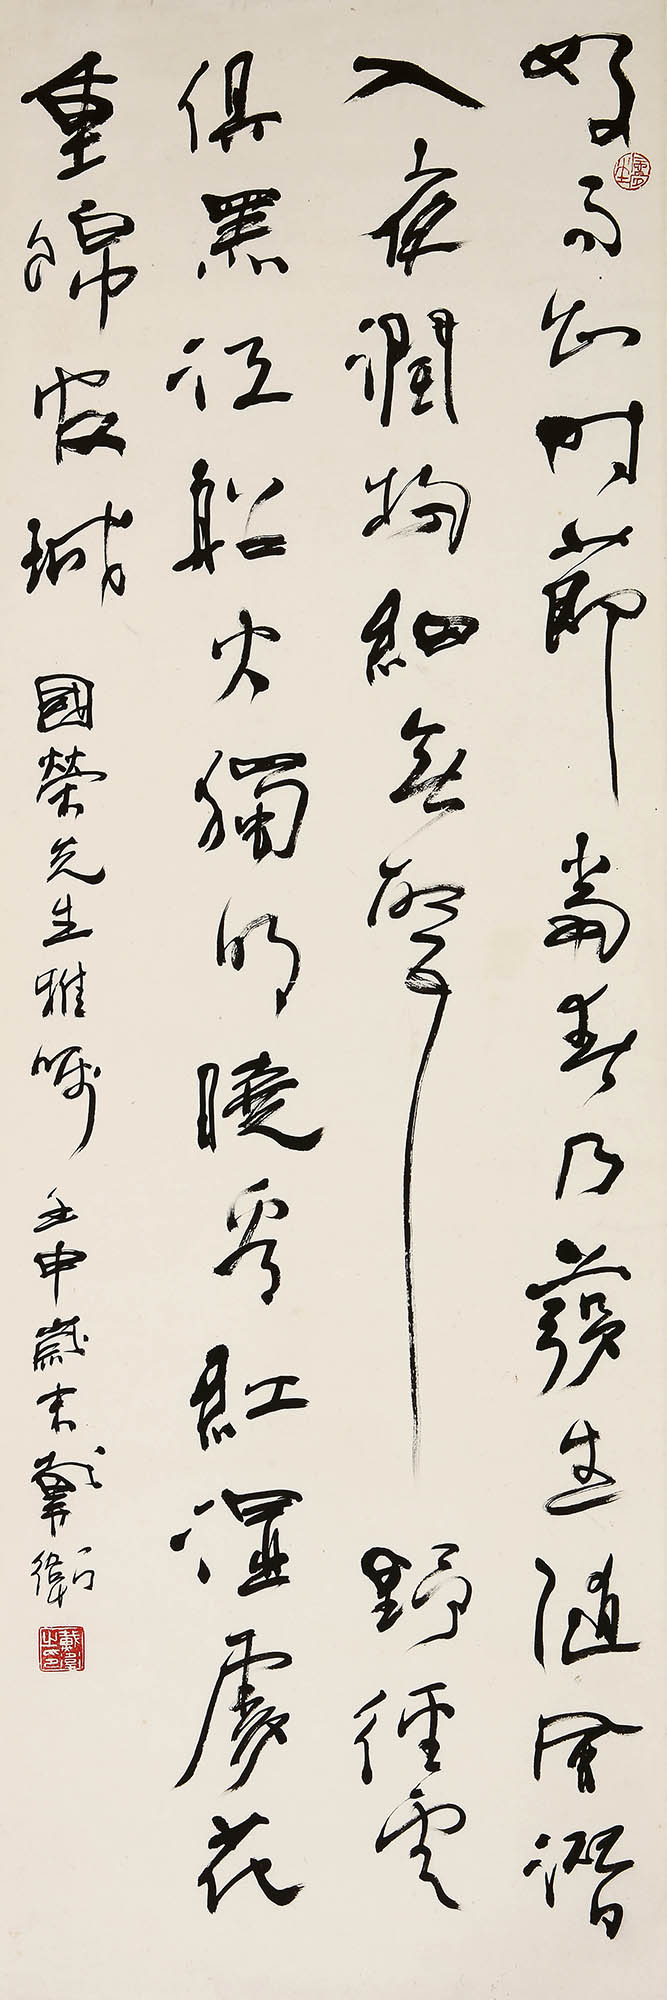 好雨知時節當春乃發生隨風潛
入夜潤物細無聲野徑雲
俱黑江船火獨明曉看紅濕處花
重錦官城 國榮先生雅囑 壬申歲末戴衛
戴衛之印